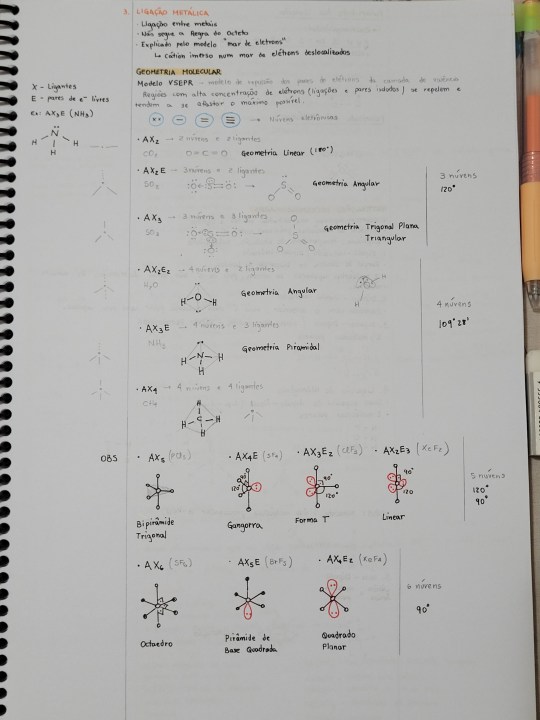 3. LIGAÇÃO METÁLICA
- Ligação entre metais
- Não segue a Regra do Octeto
- Explicado pelo modelo "mar de eletrons"
↳ Cátion imerso num mar de elétrons deslocalizados
GEOMETRIA MOLECULAR
Modelo VSEPR - modelo de repulsão dos pares de elétrons da camada de valência
Regiões com alta concentração de elétrons (ligações e pares isolados) se repelem e
tendem a se afastar o máximo possível.
→ Núvens eletrônicas
X - Ligantes
E - pares de e⁻ livres
Ex: AX3E (NH3)
H N H
H
· AX2 → 2 núvens e 2 ligantes
CO2 O=C=O Geometria Linear (180°)
· AX2E → 3 núvens e 2 ligantes
SO2 O S O → S O O Geometria Angular
3 núvens
120°
· AX3 → 3 núvens e 3 ligantes
SO3 O S O O → O S O O Geometria Trigonal Plana
Triangular
· AX2E2 → 4 núvens e 2 ligantes
H2O H O H Geometria Angular
4 núvens
109° 28'
· AX3E → 4 núvens e 3 ligantes
NH3 H N H H Geometria Piramidal
· AX4 → 4 núvens e 4 ligantes
CF4
H
H C H
H
OBS · AX5 (PCl5) · AX4E (SF4) · AX3E2 (ClF3) · AX2E3 (XeF2)
90° 120° 90° 120° 90° 120
5 núvens
120°
90°
Bipirâmide
Trigonal
Gangorra
Forma T
Linear
· AX6 (SF6) · AX5E (BrF5) · AX4E2 (XeF4)
6 núvens
90°
Octaedro
Pirâmide de
Base Quadrada
Quadrado
Planar